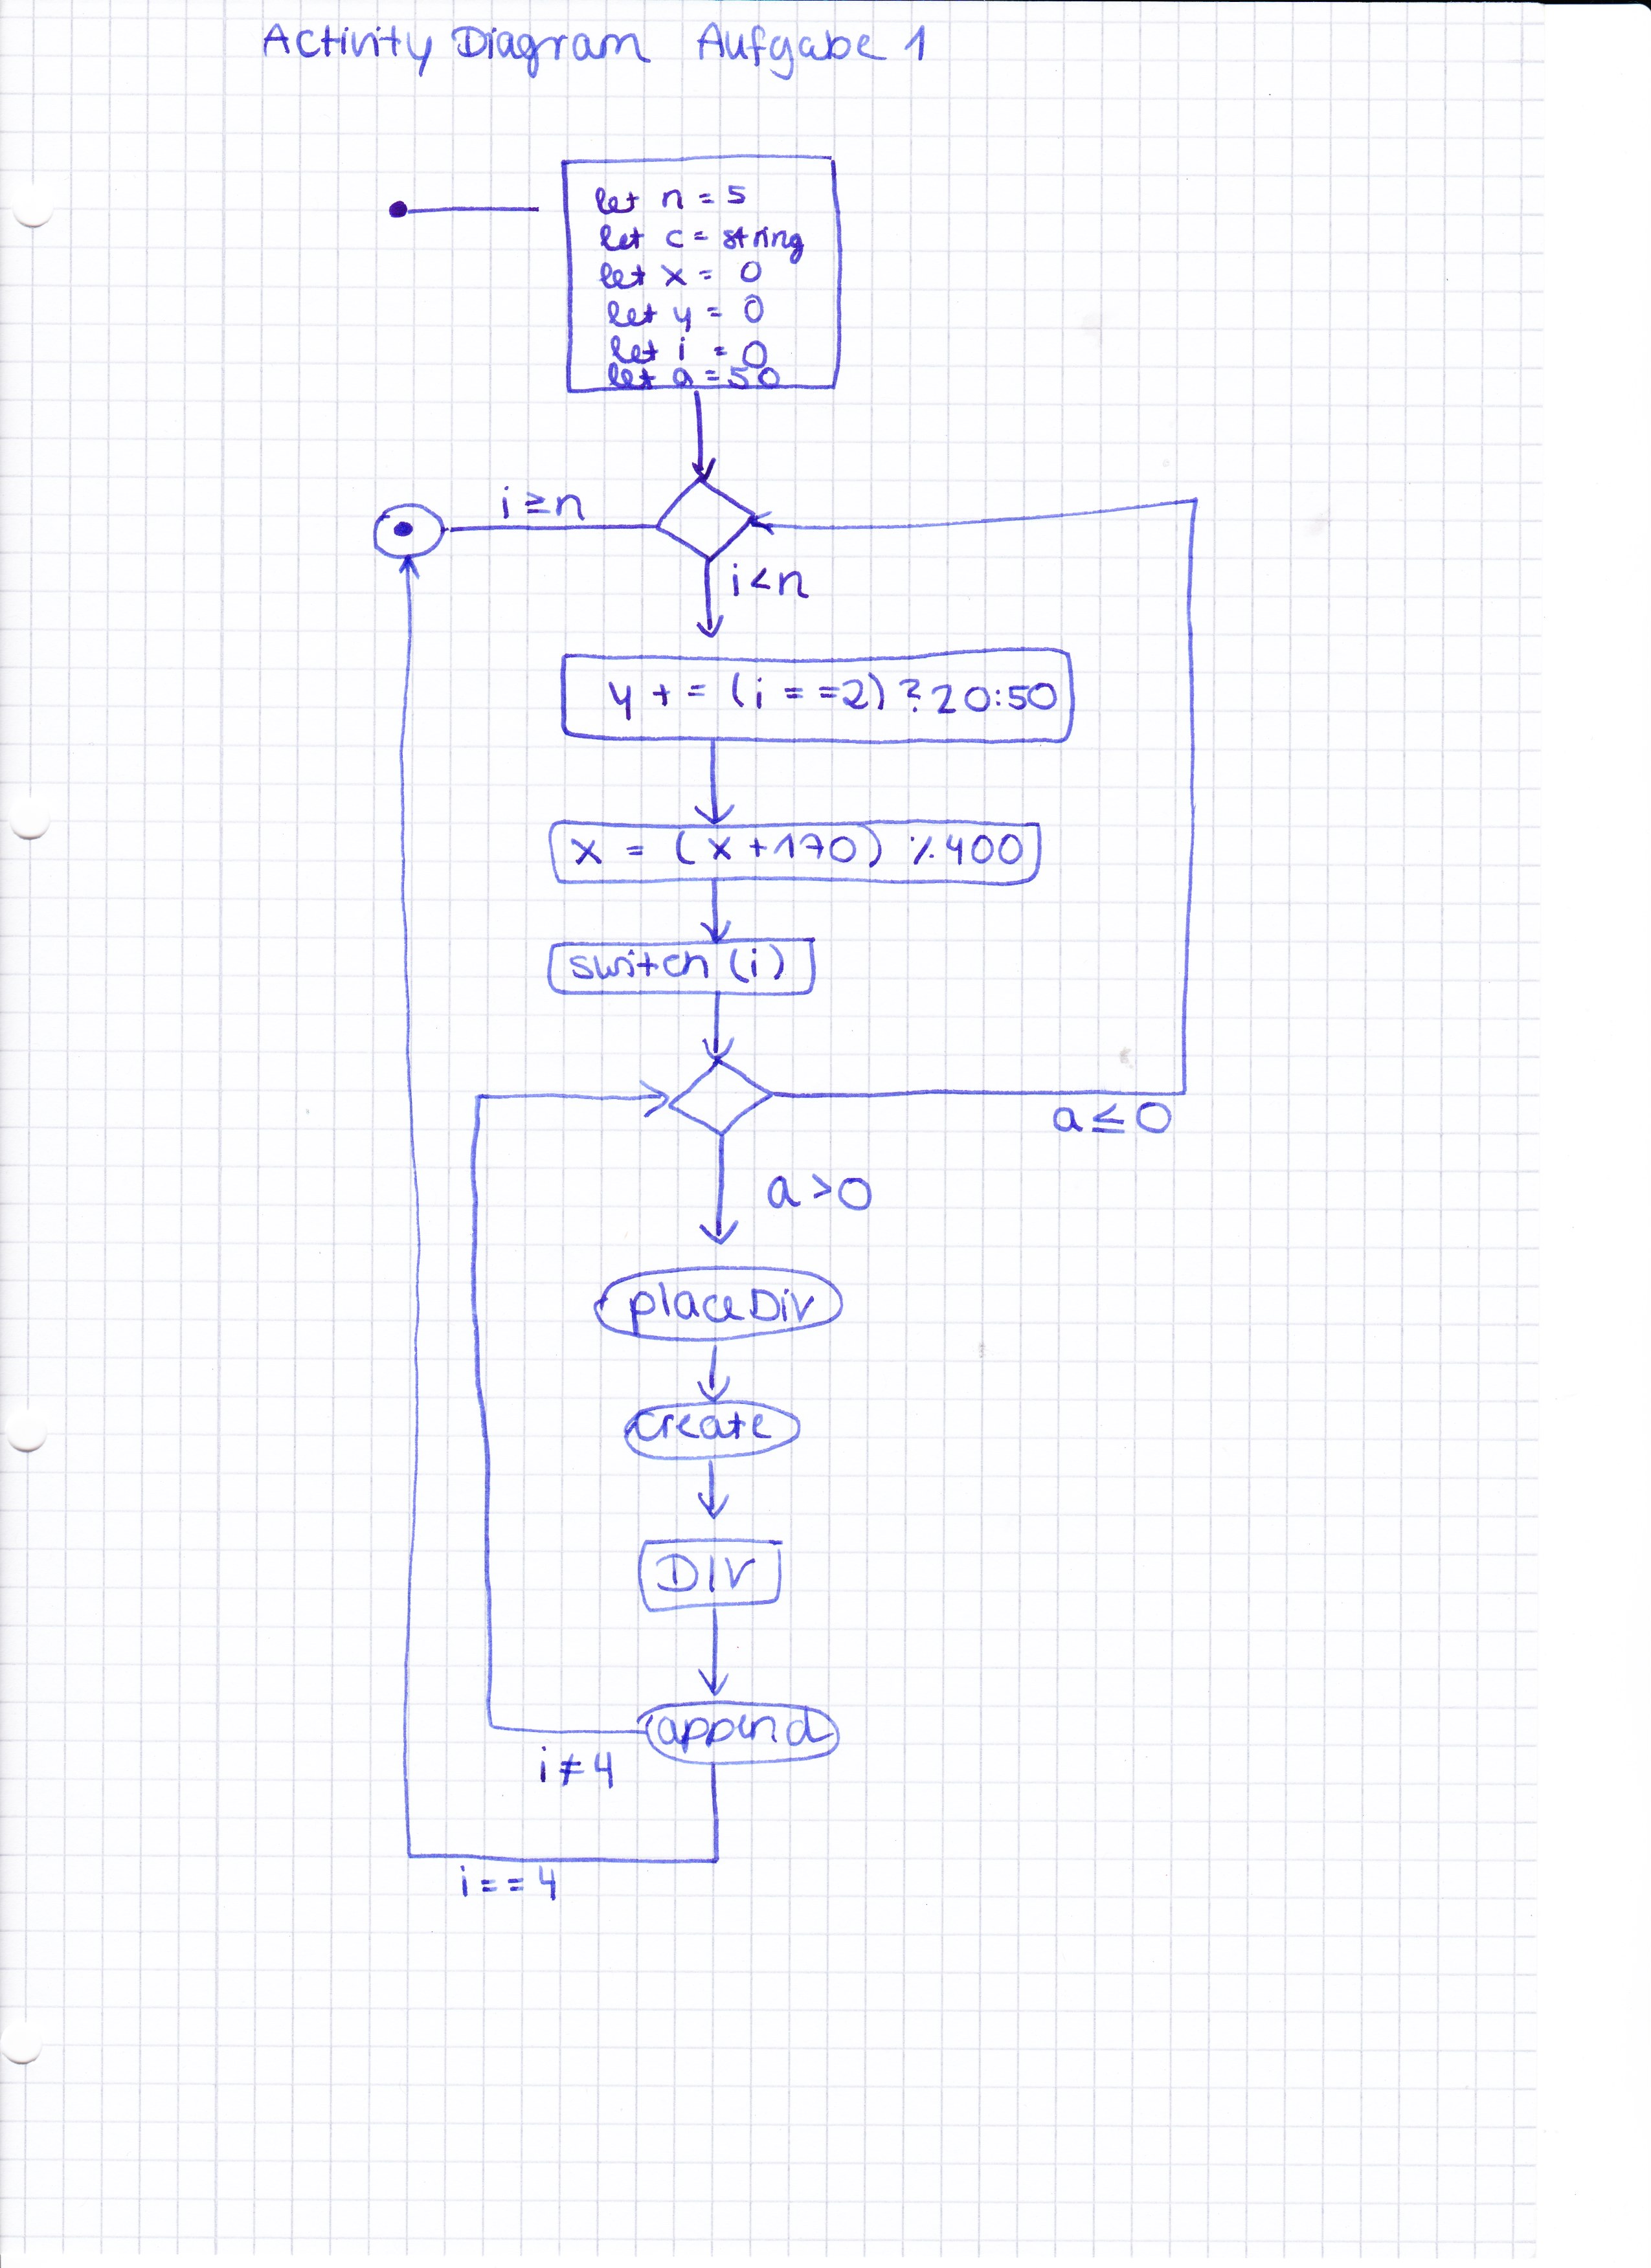 Activity Diagram Aufgabe 1
let n = 5
let c = string
let x = 0
let y = 0
let i = 0
let a = 50
i ≥ n
i < n
y += (i == 2) ? 20:50
x = (x+170) % 400
switch (i)
a ≤ 0
a > 0
placeDiv
create
DIV
append
i ≠ 4
i == 4